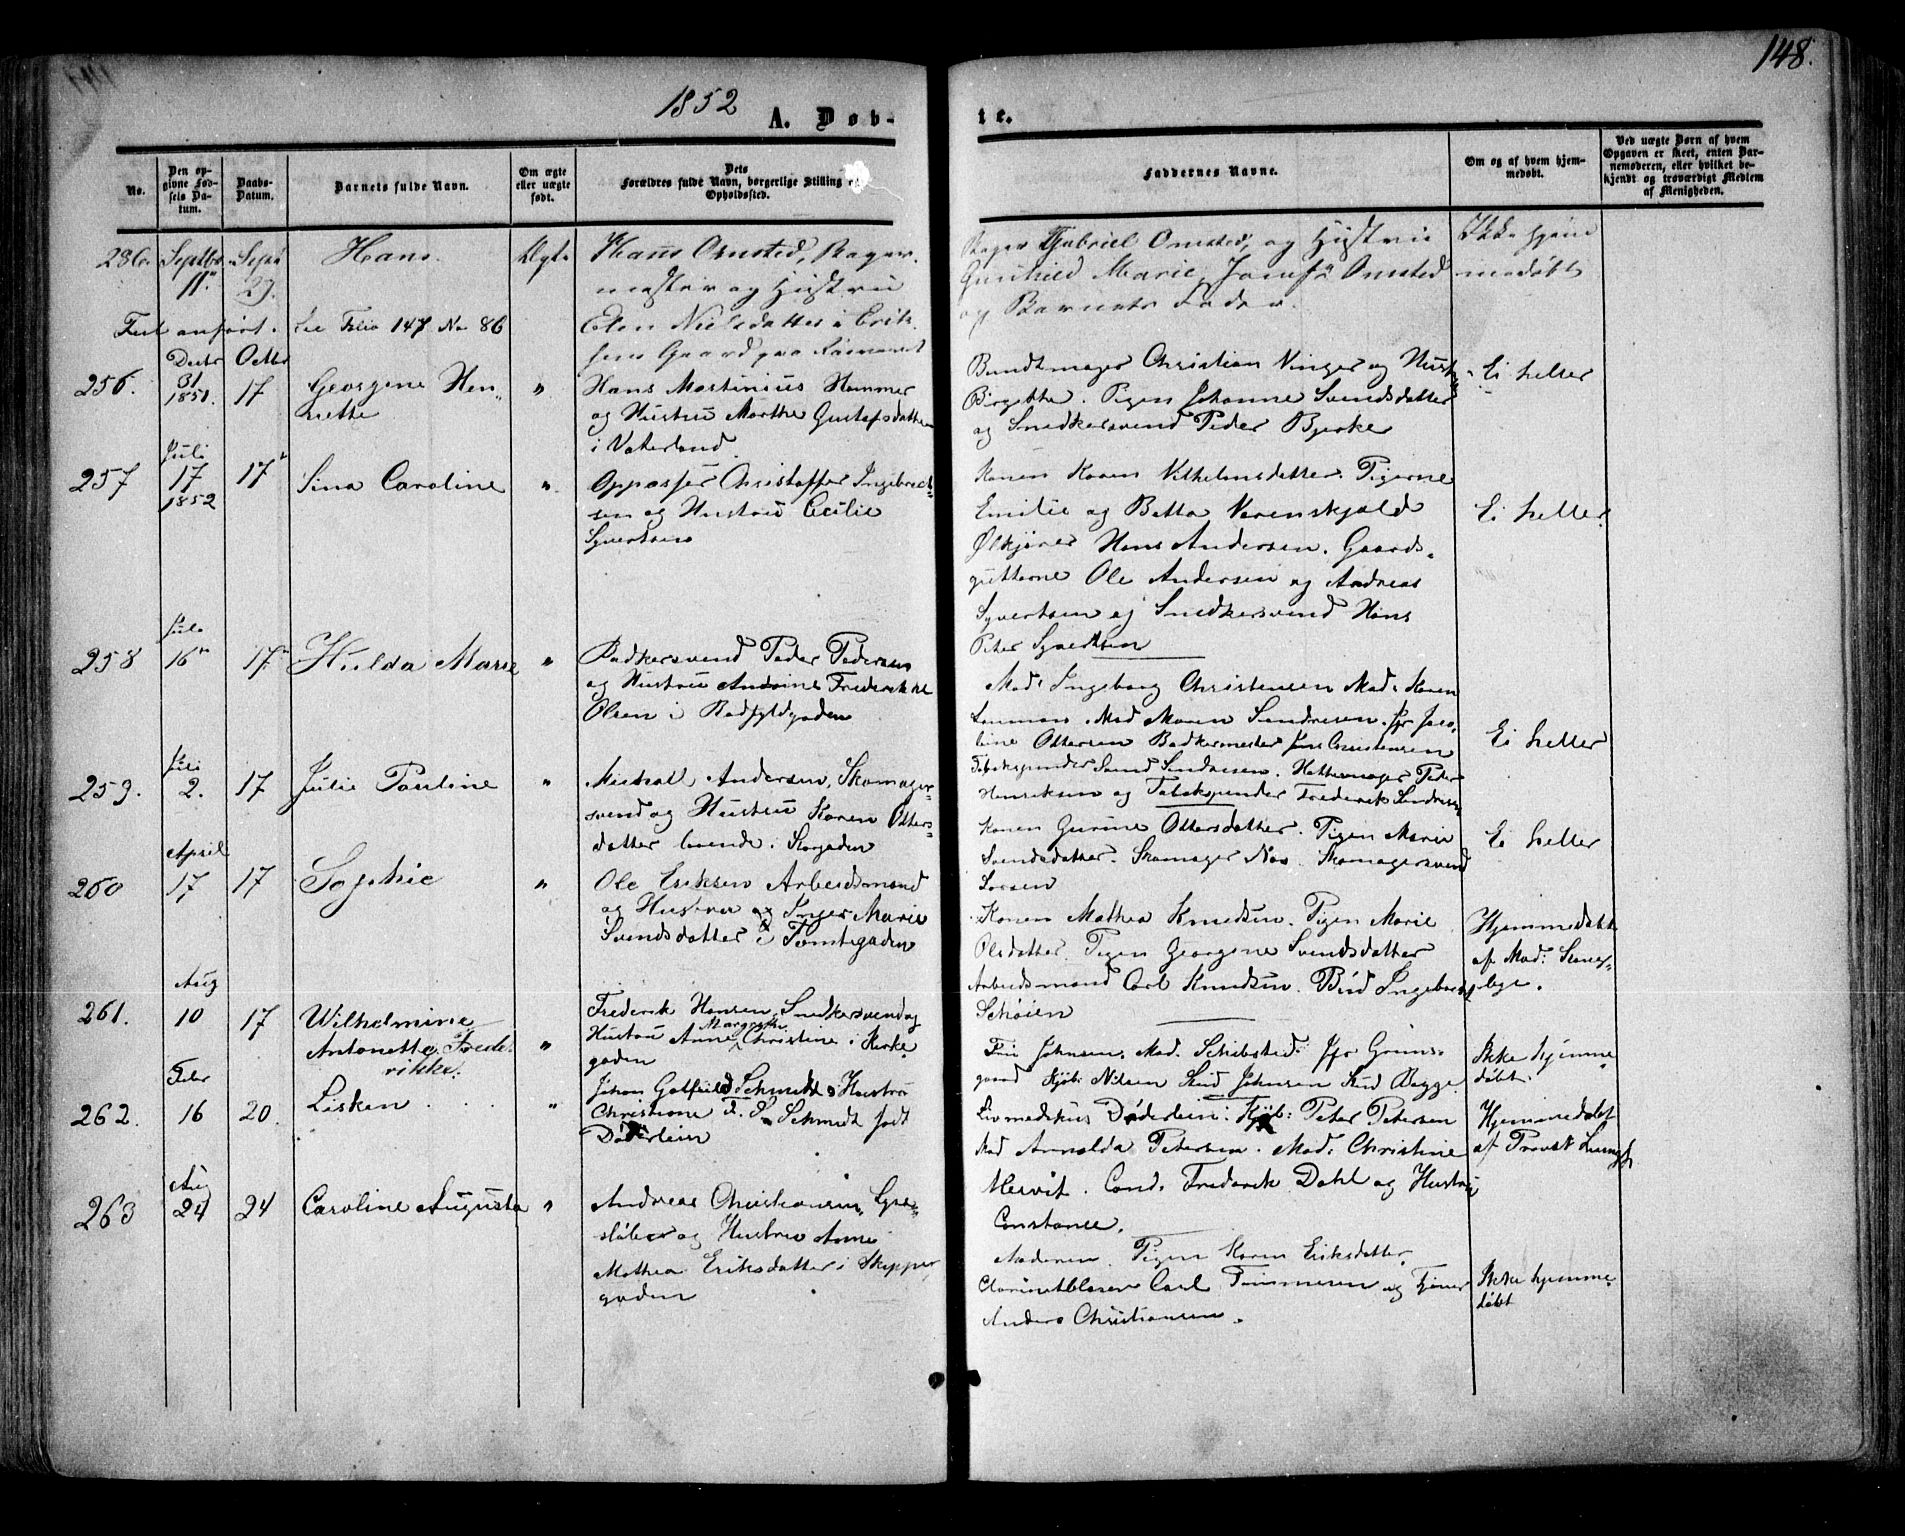 148.
1852
A. Døb-
te.
No.
Den opgivne Fødsels Datum.
Daabs-Datum.
Barnets fulde Navn.
Om ægte eller uægte født.
Dets Forældres fulde Navn, borgerlige Stilling
Opholdssted.
Faddernes Navne.
Om og af hvem hjemmedøbt.
Ved uægte Børn af hvem Opgaven er skeet, enten Barnemoderen, eller hvilket bekjendt og troværdigt Medlem af Menigheden.
286. Septbr 11. Sept 29. Hans. Ægte
Hans Omsted, Bager-
mester og Hustru
Elen Nielsdatter i Erik-
sens Gaard paa
Bager Gabriel Omsted, og Hustru
Gunhild Marie, Omsted
og Barnets Fader.
Ikke hjem
medøbt
Feil anført. See Folio 147 No 86
256. Decbr 31 1851. Octbr 17 Georgene Hen-
riette "
Hans Martinius Hammer
og Hustru Marthe Gustafsdatter
i Vaterland
Bundtmager Christian Vinger og Hustr
Birgitte. Pigen Johanne Svendsdatter
og Snedkersvend Peder Bjerke
Ei heller
257 Juli 17 1852 17 Sina Caroline "
Oppasser Christoffer Ingebret-
sen og Hustru Cecilie
Syvertsen
Konen Karen Vilhelmsdatter. Pigerne
Emilie og Betta Verenskjold
Ølkjører Hans Andersen. Gaards-
gutterne Ole Andersen og Andreas
Syvertsen og Snedkersvend Hans
Peter Syvertsen
Ei heller
258 Juli 16 17 Hulda Marie "
Badkersvend Peder Pedersen
og Hustru Frederikke
Olsen i Rødfyldgaden
Mad: Ingeborg Christensen Mad: Karen
Mad Maren Sendresen.
Ottersen Badkermester Jens Christensen
Hattemager Peter
Henriksen og Frederik
Ei heller
259. Juli 2. 17 Julie Pauline "
Michall Andersen, Skomager-
svend og Hustru Karen Otters-
datter boende i
Konen Gurine Ottersdatter. Pigen Marie
Svendsdatter. Skomager Næs. Skomagersvend
Larsen
Ei heller
260 April 17 17 Sophie "
Ole Eriksen Arbeidsmand
og Hustru Inger Marie
Svendsdatter i Tomtegaden
Konen Mathea Knudsen. Pigen Marie
Olsdatter. Pigen Georgine Svendsdatter
Arbeidsmand Carl Knudsen. Bud
Schøien
Hjemmedøbt
af Mad:
261. Aug 10 17 Wilhelmine
Antonette Frede-
rikke. "
Frederik Hansen, Snedkersvend og
Hustru Anne Margrethe Christine i Kirke-
gaden
Fru Johnsen. Mad. Schibsted.
Kjøb: Nilsen Stud Johnsen Stud Bagge
Ikke hjemme
døbt.
262. Febr 16 20. Lisken "
Johan Gotfried Schmidt & Hustru
Christiane F. S. Schmidt født
Døderlein
Livmedikus Døderlein: Kjøb: Peter Petersen
Mad Arnolda Petersen. Mad: Christine
Cand. Frederik Dahl og Hustru
Constance.
Hjemmedøbt
af Provst
263 Aug 24 24 Caroline Augusta "
Andreas Christiansen,
og Hustru Anne
Mathea Eriksdatter i Skipper
gaden
Moderen. Pigen Karen Eriksdatter.
Clarinetblæser Carl og Tjener
Anders Christiansen.
Ikke hjemme
døbt